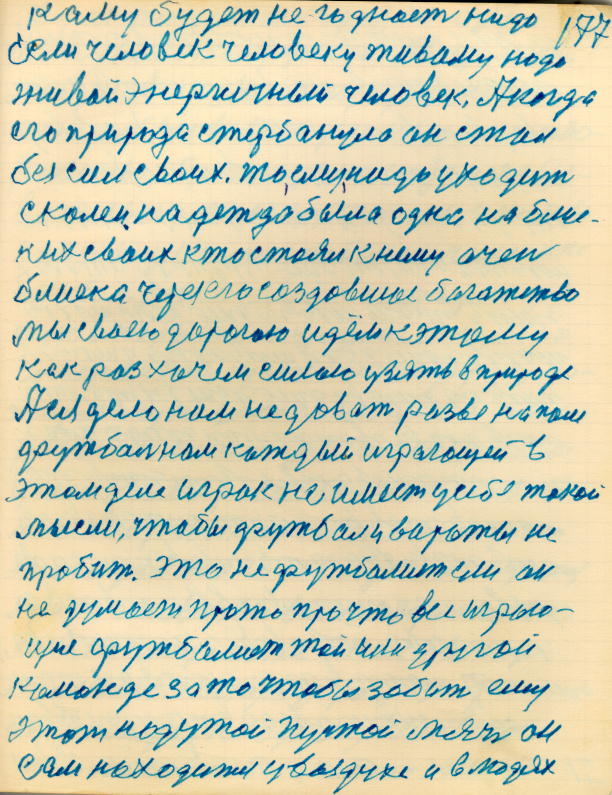 кому будет не годност надо 177
Если человек человеку живому надо
живой энергичный человек. А когда
его природа стербанула он стал
без сил своих. то ему надо уходит
сколец надежда была одна на близ-
ких своих кто стоял к нему очен
близка через его создовшое богатство
мы своею дорогою идём к этому
как раз хочем силою узять в природе
А ея дело нам не доват разве на поле
фужбалном каждый играющей в
этом деле игрок не имеет у себе такой
мысли, чтобы фужбал и вароты не
пробит. Это не фужбалист если он
не думает прото про что все играю-
щие фужбалист той или другой
команде за то чтобы забит ему
этот надутой пустой мяч он
сам находится у воздухе и в людях